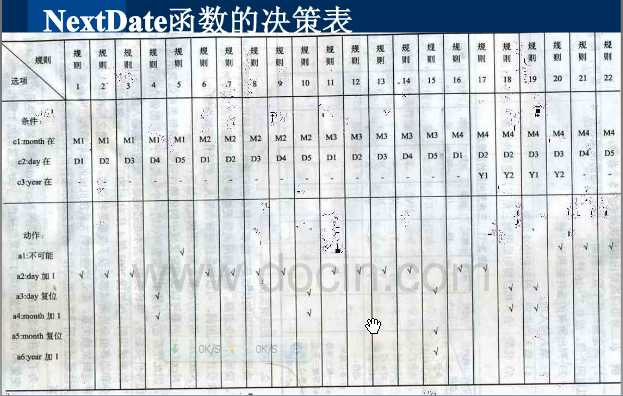 NextDate函数的决策表
规则 规则 规则 规则 规则 规则 规则 规则 规则 规则 规则 规则 规则 规则 规则 规则 规则 规则 规则 规则 规则 规则 规则
选项 1 2 3 4 5 6 7 8 9 10 11 12 13 14 15 16 17 18 19 20 21 22
条件:
c1:month 在 M1 M1 M1 M1 M1 M2 M2 M2 M2 M2 M3 M3 M3 M3 M3 M4 M4 M4 M4 M4 M4 M4
c2:day 在 D1 D2 D3 D4 D5 D1 D2 D3 D4 D5 D1 D2 D3 D4 D5 D1 D2 D2 D3 D3 D4 D5
c3:year 在 - - - - - - - - - - - - - - - - Y1 Y2 Y1 Y2 - -
动作:
a1:不可能 √ √ √ √
a2:day 加 1 √ √ √ √ √ √ √ √ √ √ √ √ √
a3:day 复位 √ √ √ √ √
a4:month 加 1 √ √ √ √
a5:month 复位 √
a6:year 加 1 √
www.docin.com
0K/S 0K/S